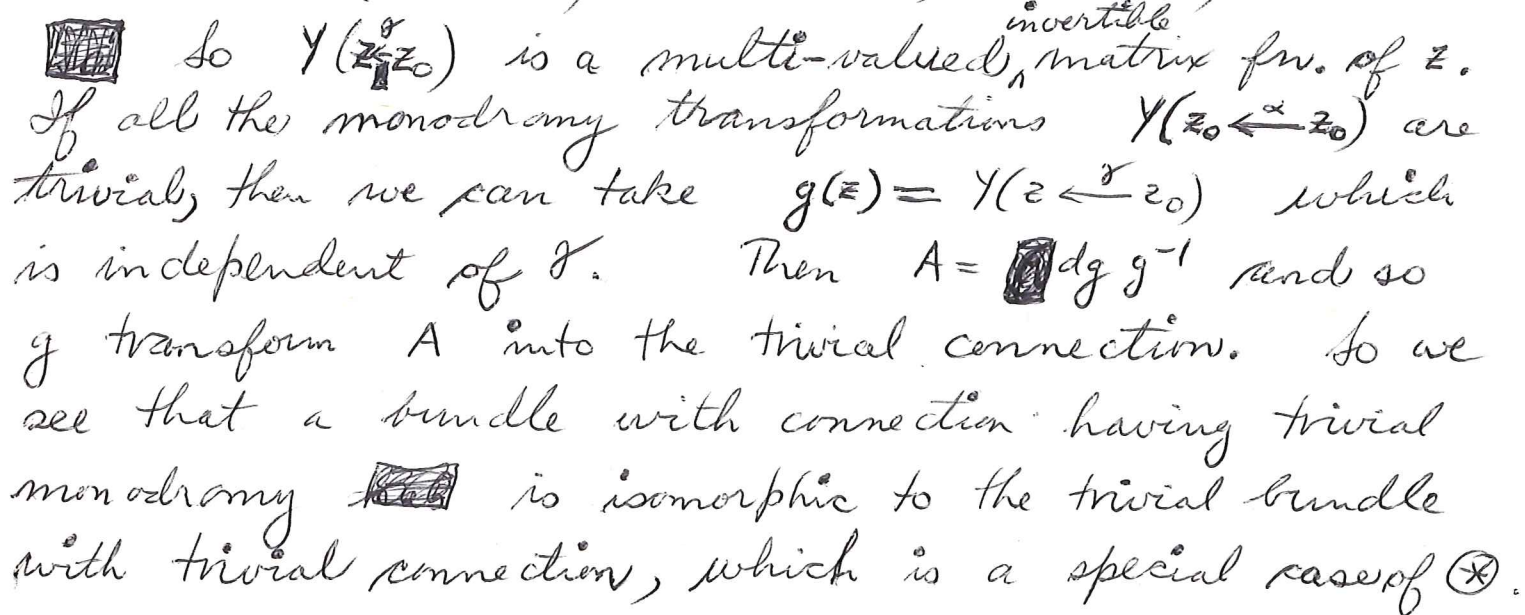 So Y(z ←^γ z₀) is a multi-valued ‸invertible matrix fn. of z.
If all the monodromy transformations Y(z₀ ←^α z₀) are
trivial, then we can take g(z) = Y(z ←^γ z₀) which
is independent of γ. Then A = dg g⁻¹ and so
g transform A into the trivial connection. So we
see that a bundle with connection having trivial
monodromy is isomorphic to the trivial bundle
with trivial connection, which is a special case of ⊛.